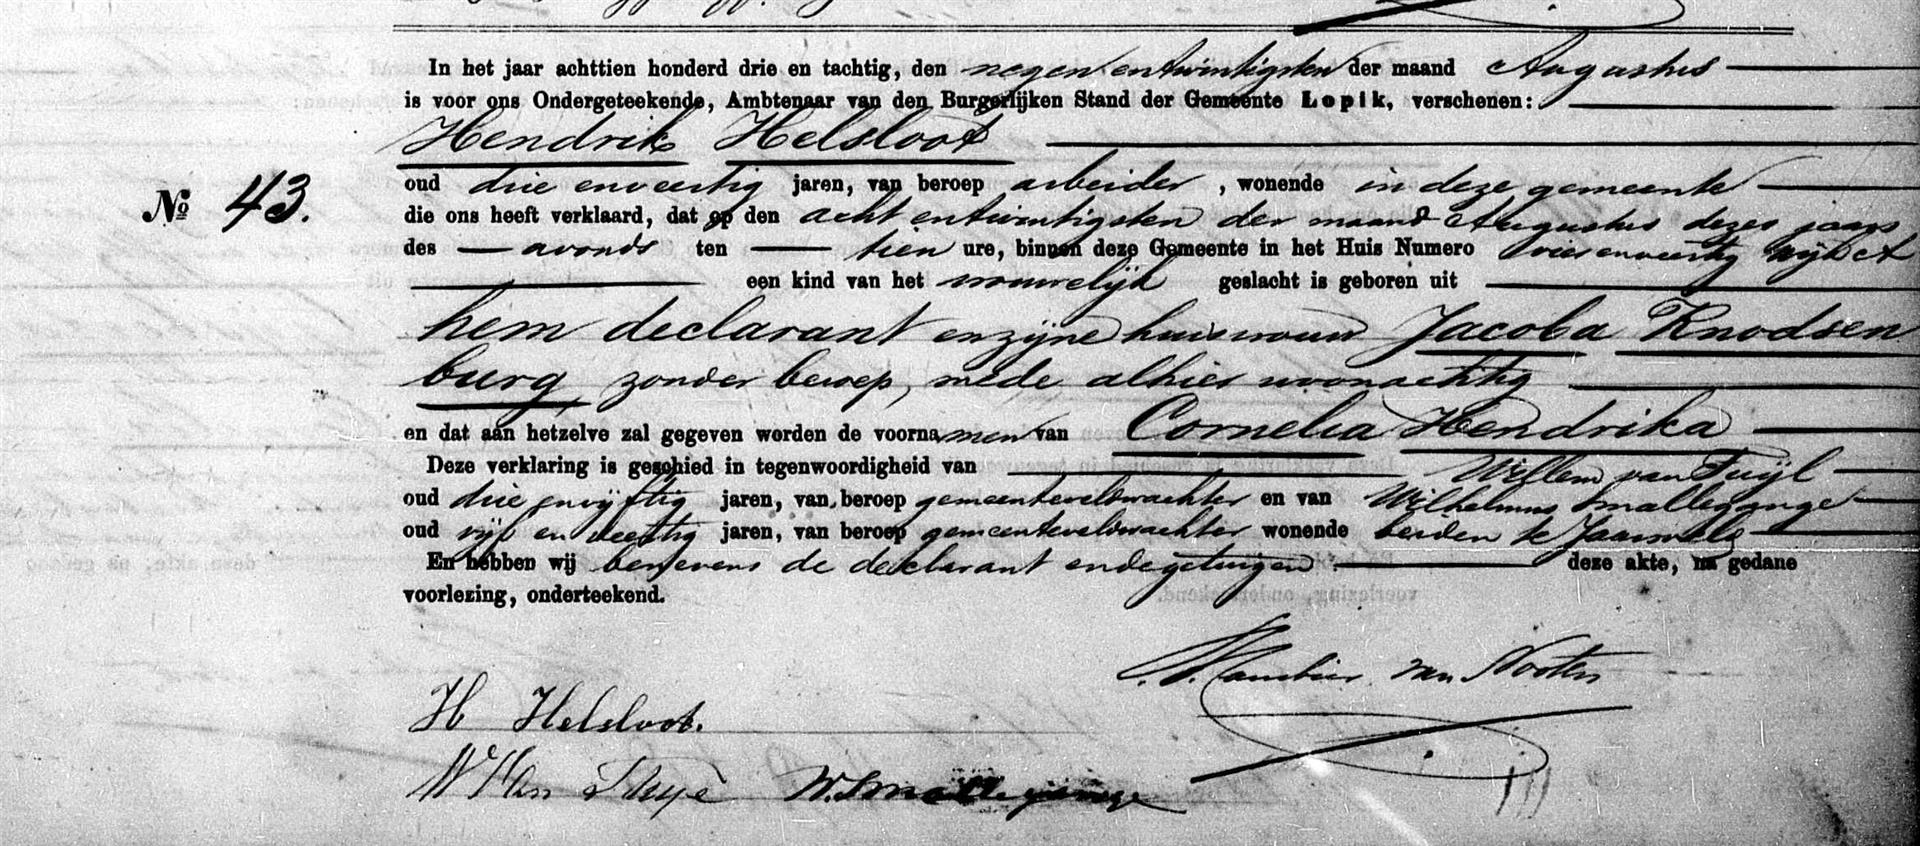 In het jaar achttien honderd drie en tachtig, den negen entwintigsten der maand Augustus
is voor ons Ondergeteekende, Ambtenaar van den Burgerlijken Stand der Gemeente Lopik, verschenen:
Hendrik Helsloot
oud drie enveertig jaren, van beroep arbeider, wonende in deze gemeente
No 43.
die ons heeft verklaard, dat op den acht entwintigsten der maand Augustus dezes jaars
des avonds ten tien ure, binnen deze Gemeente in het Huis Numero vier enveertig wijk A
een kind van het vrouwelijk geslacht is geboren uit
hem declarant en zijne huisvrouw Jacoba Knodsen
burg, zonder beroep, mede alhier woonachtig
en dat aan hetzelve zal gegeven worden de voornamen van Cornelia Hendrika
Deze verklaring is geschied in tegenwoordigheid van Willem van Tuijl
oud drie envijftig jaren, van beroep gemeenteveldwachter en van Wilhelmus Smallegange
oud vijf en veertig jaren, van beroep gemeenteveldwachter wonende beiden te Jaarsveld
En hebben wij benevens de declarant en de getuigen deze akte, na gedane
voorlezing, onderteekend.
van Nooten
H Helsloot.
W Smallegange